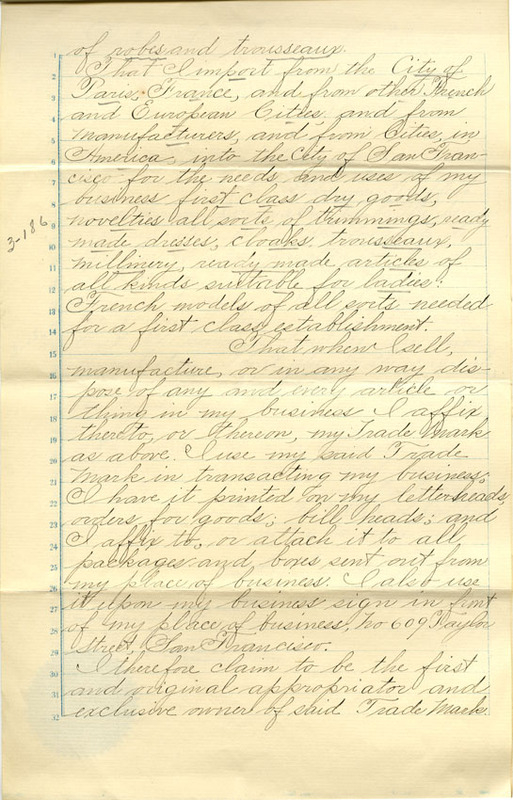 1 of robes and trousseaux.
2 That I import from the City of
3 Paris, France, and from other French
4 and European Cities, and from
5 manufacturers, and from Cities, in
6 America, into the City of San Fran-
7 cisco for the needs and uses of my
8 business first class dry goods,
9 novelties all sorts of trimmings, ready
10 made dresses, cloaks, trousseaux,
11 millinery, ready made articles of
12 all kinds suitable for ladies:
13 French models of all sorts needed
14 for a first class establishment.
15 That when I sell,
16 manufacture, or in any way dis-
17 pose of any and every article or
18 thing in my business I affix
19 thereto, or thereon, my Trade Mark
20 as above. I use my said Trade
21 Mark in transacting my business;
22 I have it printed on my letterheads,
23 orders for goods; bill heads; and
24 I affix to, or attach it to all
25 packages and boxes sent out from
26 my place of business. I also use
27 it upon my business sign in front
28 of my place of business, No 609 Taylor
29 Street, San Francisco.
30 I therefore claim to be the first
31 and original appropriator and
32 exclusive owner of said Trade Mark.
3-186